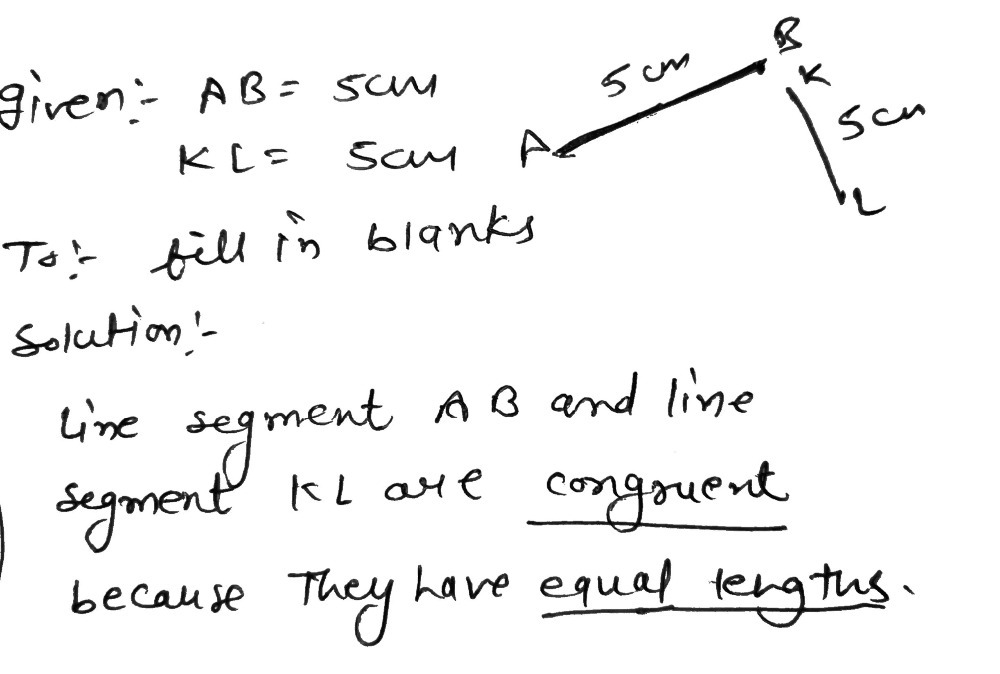 given:- AB = 5cm
KL = 5cm
A 5 cm B
K 5 cm L
To:- fill in blanks
Solution:-
Line segment AB and line
segment KL are congruent
because They have equal lengths.